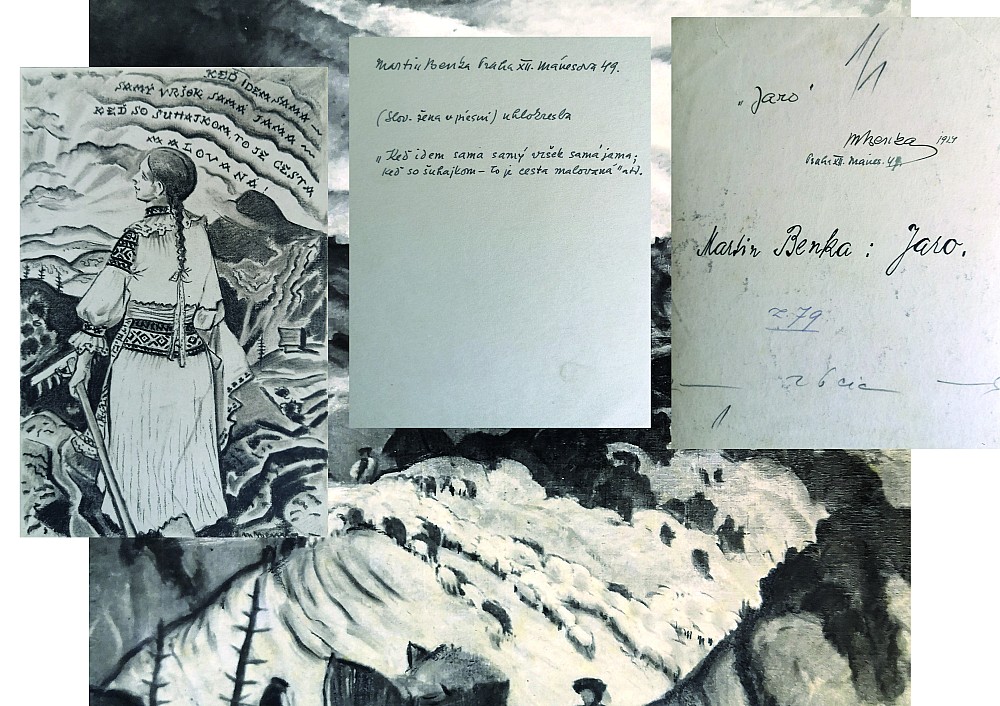 KEĎ IDEM SAMA—
SAMÝ VRŠOK SAMÁ JAMA—
KEĎ SO ŠUHAJKOM, TO JE CESTA
MAĽOVANÁ!
Martin Benka Praha XII. Mánesova 49.
(Slov. žena v piesni) uhlokresba
„Keď idem sama samý vršek samá jama;
keď so šuhajkom – to je cesta malovana" atď.
„Jaro"
MBenka
Praha XII. Mánes. 49
Martin Benka : Jaro.
z. 79.